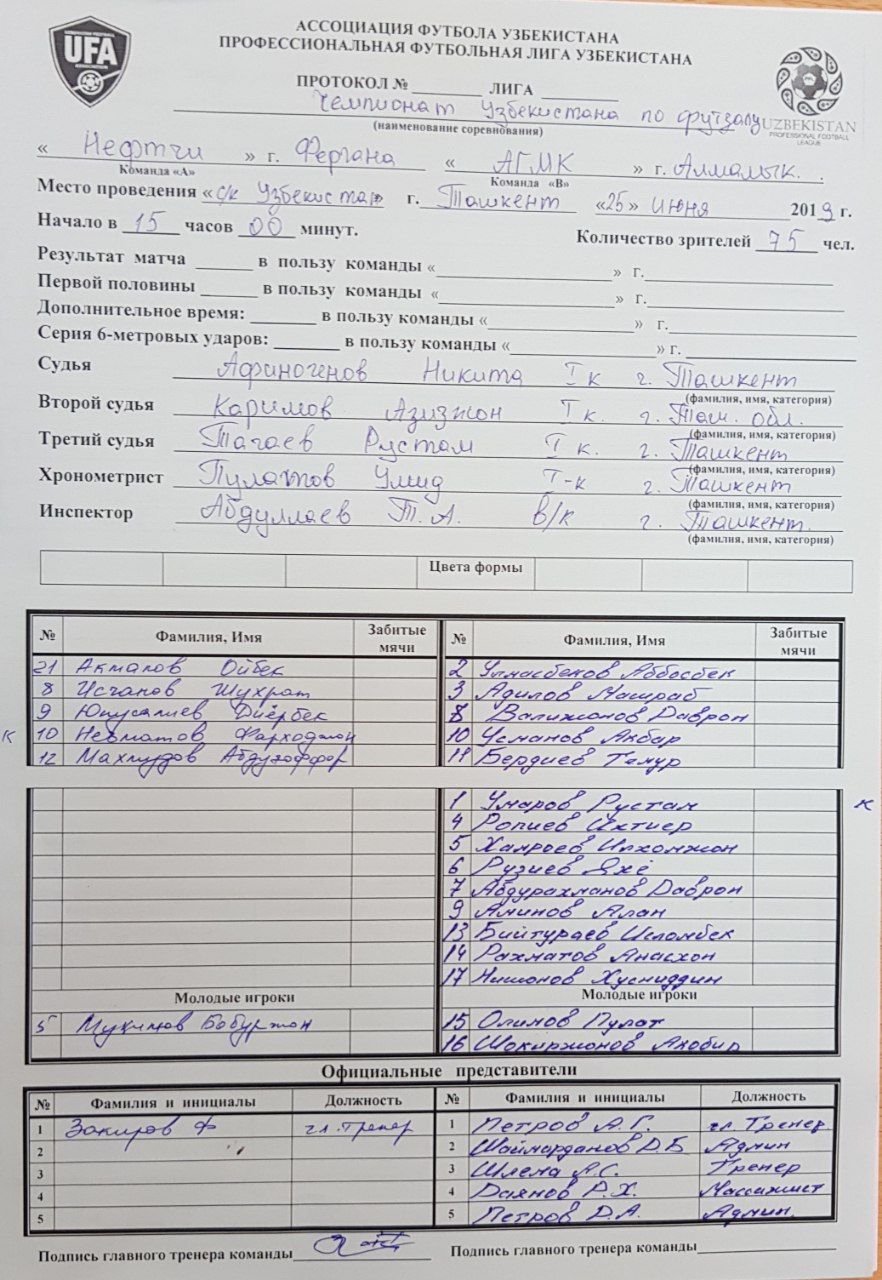 UFA
АССОЦИАЦИЯ ФУТБОЛА УЗБЕКИСТАНА
ПРОФЕССИОНАЛЬНАЯ ФУТБОЛЬНАЯ ЛИГА УЗБЕКИСТАНА
ПРОТОКОЛ № ________ ЛИГА ________
Чемпионат Узбекистана по футзалу
(наименование соревнования)
UZBEKISTAN
PROFESSIONAL FOOTBALL
LEAGUE
« Нефтчи » г. Фергана « АГМК » г. Алмалык.
Команда «А» Команда «В»
Место проведения «с/к Узбекистан г. Ташкент «25» июня 2019 г.
Начало в 15 часов 00 минут. Количество зрителей 75 чел.
Результат матча ______ в пользу команды «____________» г.____________
Первой половины ______ в пользу команды «____________» г.____________
Дополнительное время: ______ в пользу команды «____________» г.____________
Серия 6-метровых ударов: ______ в пользу команды «____________» г.____________
Судья Афиногенов Никита I к г. Ташкент
(фамилия, имя, категория)
Второй судья Каримов Азизжон I к. г. Таш. обл.
(фамилия, имя, категория)
Третий судья Тагаев Рустам I к. г. Ташкент
(фамилия, имя, категория)
Хронометрист Пулатов Умид I-к г. Ташкент
(фамилия, имя, категория)
Инспектор Абдуллаев Т.А. В/к г. Ташкент.
(фамилия, имя, категория)
Цвета формы
№ Фамилия, Имя Забитые мячи № Фамилия, Имя Забитые мячи
21 Акмалов Ойбек 2 Улмасбеков Аббосбек
8 Исганов Шухрат 3 Адилов Машраб
9 Юнусалиев Диёрбек 8 Валижонов Даврон
к 10 Негматов Фарходжон 10 Усманов Акбар
12 Махмудов Абдугаффор 11 Бердиев Темур
1 Умаров Рустам к
4 Ропиев Ихтиер
5 Хамроев Илхомжон
6 Рузиев Яхё
7 Абдурахманов Даврон
9 Аминов Алан
13 Бийтураев Исломбек
14 Рахматов Анасхон
17 Нишонов Хусниддин
Молодые игроки Молодые игроки
5 Мукимов Бобуржон 15 Олимов Пулат
16 Шокиржонов Акобир
Официальные представители
№ Фамилия и инициалы Должность № Фамилия и инициалы Должность
1 Закиров Ф гл. тренер 1 Петров А.Г. гл. Тренер
2 2 Шаймарданов Д.Б Админ
3 3 Шлема А.С. Тренер
4 4 Даянов Р.Х. Массажист
5 5 Петров Д.А. Админ.
Подпись главного тренера команды____________ Подпись главного тренера команды____________